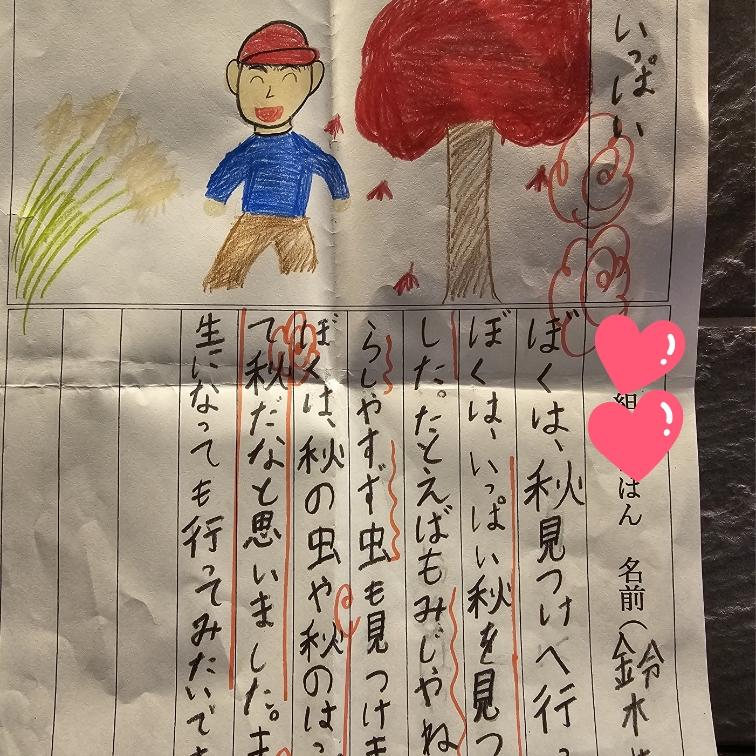 いっぱい
組 はん 名前（鈴木
ぼくは、秋見つけへ行っ
ぼくは、いっぱい秋を見つ
した。たとえばもみじやね
らしやすず虫も見つけま
ぼくは、秋の虫や秋のはっ
て秋だなと思いました。ま
生になっても行ってみたいで